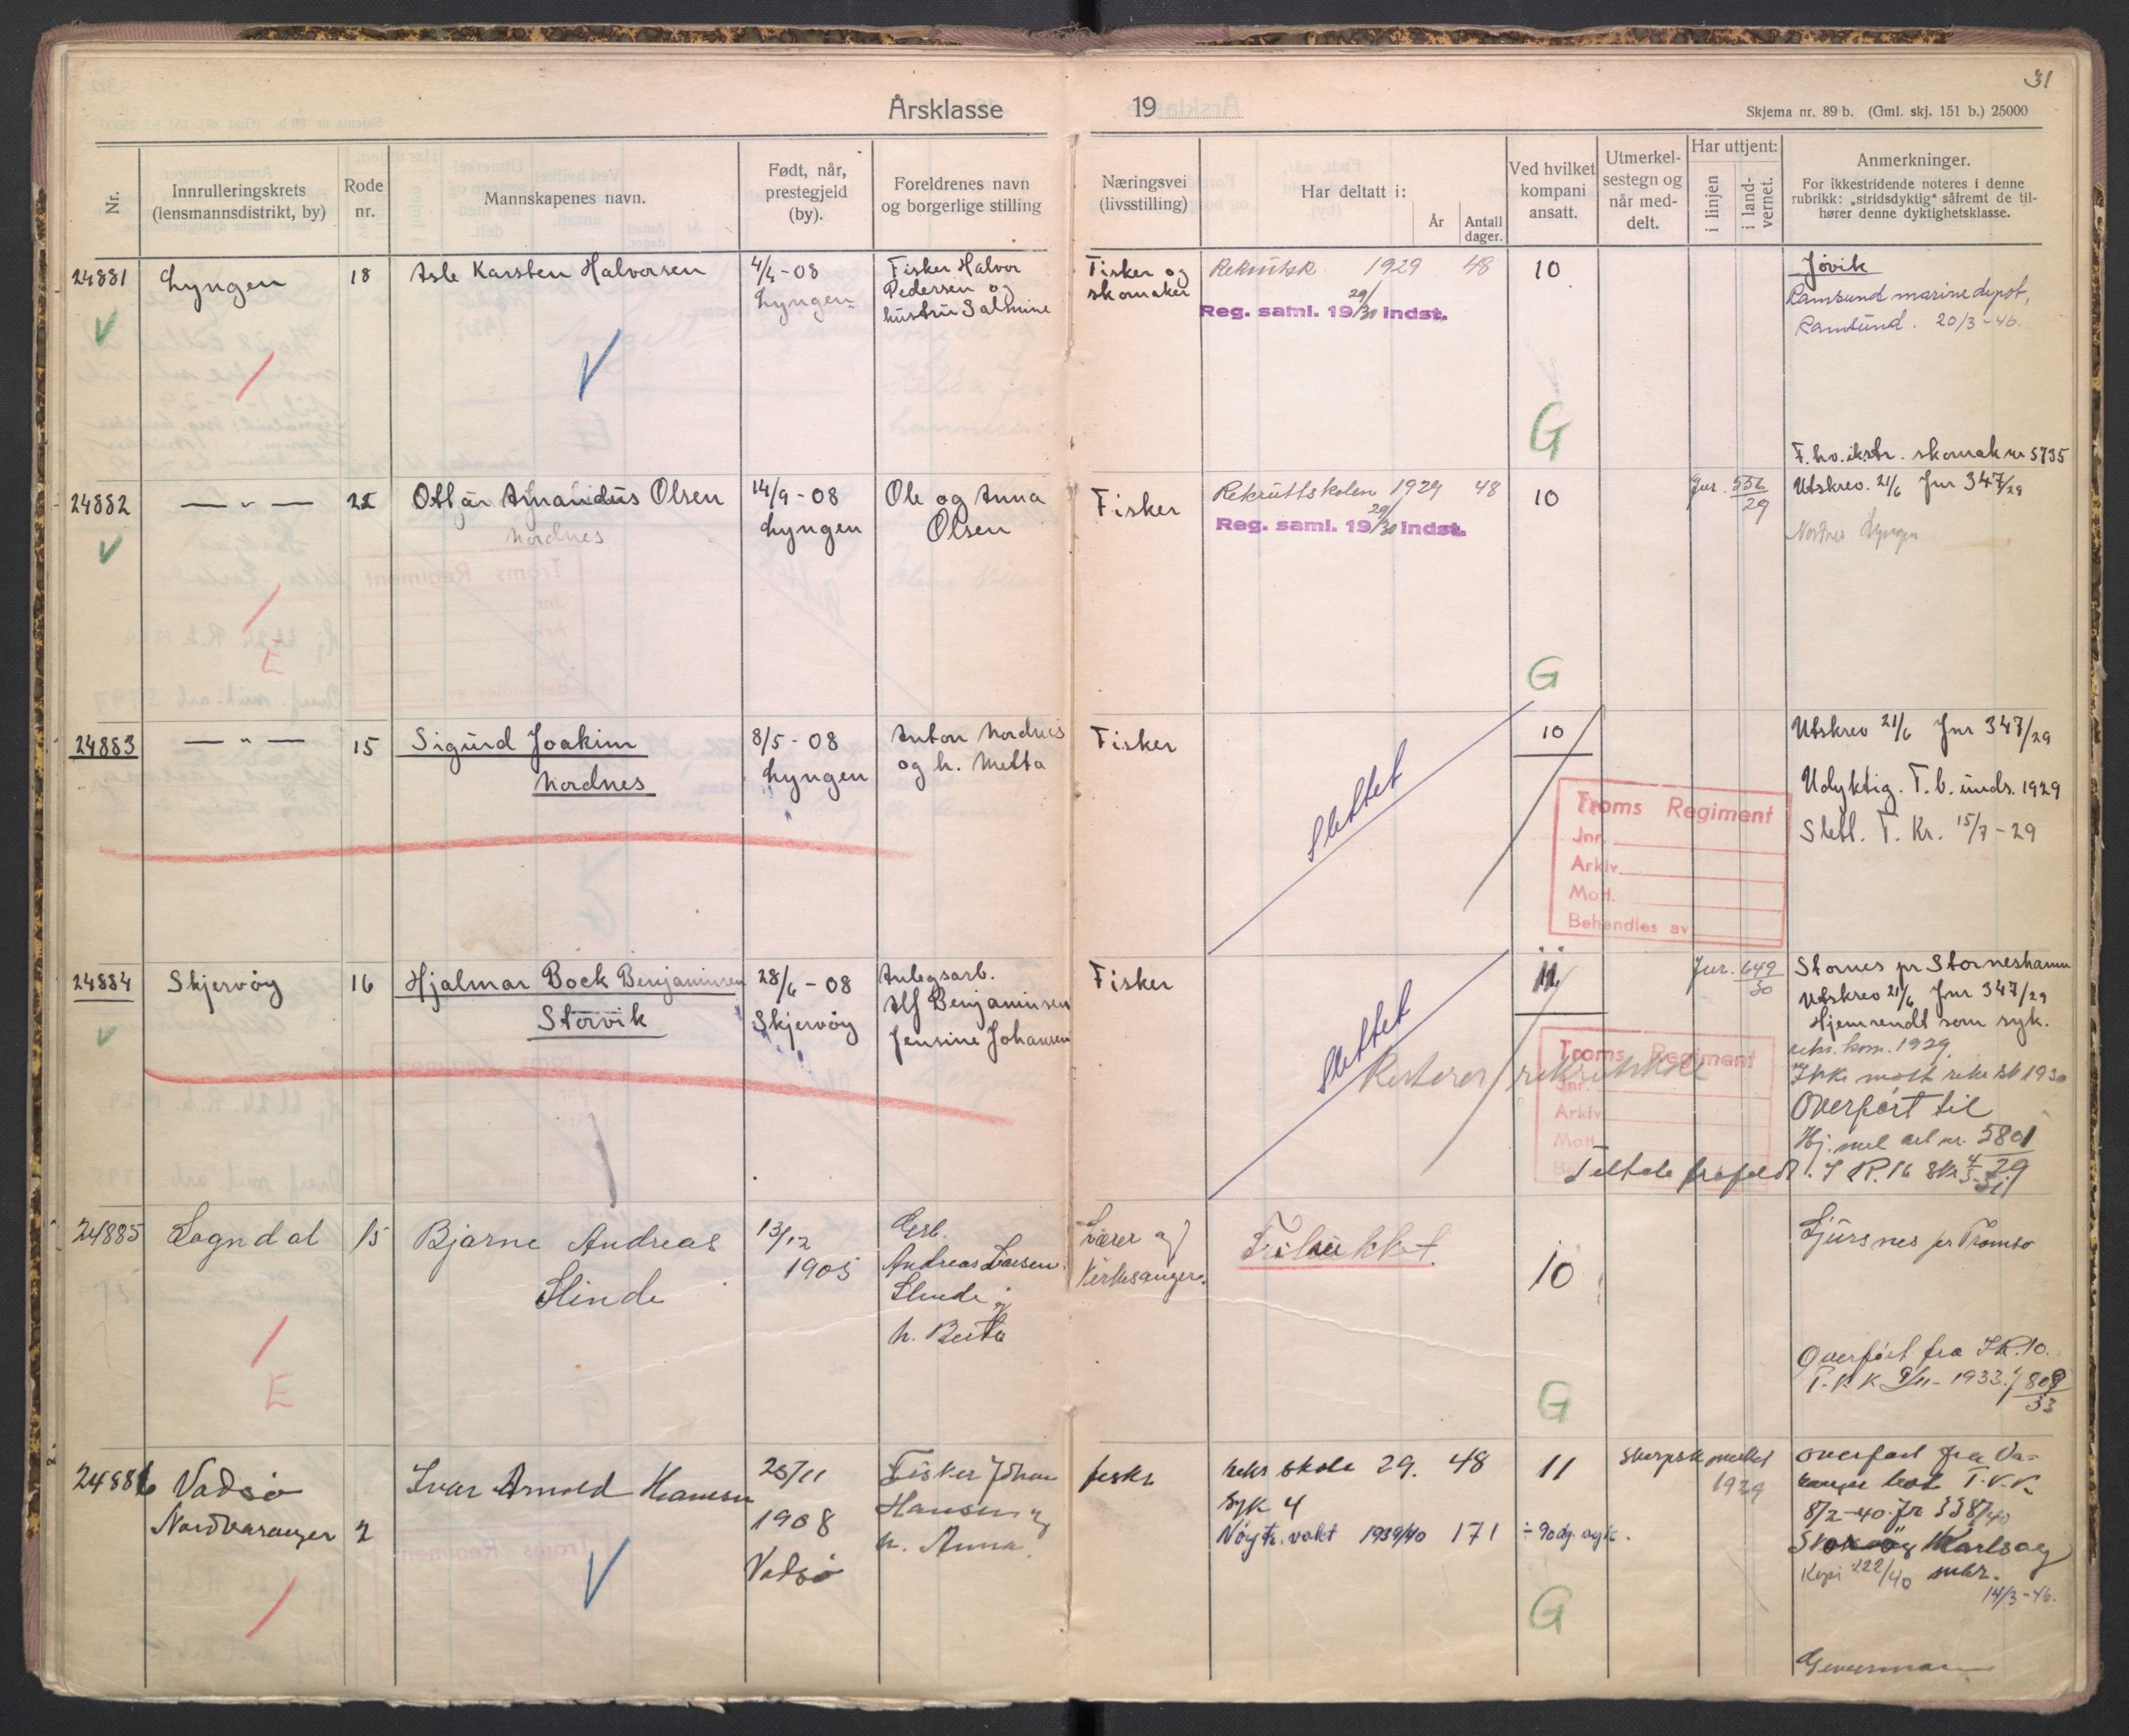 31
Årsklasse 19
Skjema nr. 89 b. (Gml. skj. 151 b.) 25000
Nr.
Innrulleringskrets
(lensmannsdistrikt, by)
Rode
nr.
Mannskapenes navn.
Født, når,
prestegjeld
(by).
Foreldrenes navn
og borgerlige stilling
Næringsvei
(livsstilling)
Har deltatt i:
År
Antall
dager.
Ved hvilket
kompani
ansatt.
Utmerkel-
sestegn og
når med-
delt.
Har uttjent:
i linjen
i land-
vernet.
Anmerkninger.
For ikkestridende noteres i denne
rubrikk: „stridsdyktig“ såfremt de til-
hører denne dyktighetsklasse.
24881
Lyngen
18
Asle Karsten Halvorsen
4/4-08
Lyngen
Fisker Halvor
Pedersen og
hustru Salmine
Fisker og
skomaker
Rekrutsk 1929 48
Reg. saml. 19 29/30 indst.
10
G
Jøvik
Ramsund marinedepot,
Ramsund. 20/3-46.
F. hv. ikstr. skomak nr 5735
24882
— " —
Ottar Amandus Olsen
Nordnes
14/9-08
Lyngen
Ole og Anna
Olsen
Fisker
Rekruttskolen 1929 48
Reg. saml. 19 29/30 indst.
10
G
Jnr. 556/29
Utskrev. 21/6 Jnr 347/29
Nordnes Lyngen
E
24883
— " —
15
Sigurd Joakim
Nordnes
8/5-08
Lyngen
Anton Nordnes
og h. Metta
Fisker
Slettet
10
Troms Regiment
Jnr.
Arkiv
Mott.
Behandles av
Utskrev 21/6 Jnr 347/29
Udyktig. T. b. unds. 1929
Slett. T. Kr. 15/7-29
24884
Skjervøy
16
Hjalmar Bock Benjaminsen
Storvik
28/6-08
Skjervøy
Anlegsarb.
Alf Benjaminsen
Jensine Johansen
Fisker
Slettet
Resterer rekrutskole
11
Troms Regiment
Jnr.
Arkiv
Mott.
Jnr. 649/30
Stornes pr Storneshamn
Utskrev 21/6 Jnr 347/29
Hjemsendt som syk.
1929.
Ikke møtt 1930
Overført til
Hj. mel nr. 5801
24885
Sogndal
15
Bjarne Andreas
Slinde
13/12
1905
Andreas Larsen
Slinde og
h. Berta
Lærer og
Kirkesanger.
Tilbukket.
10
G
Sjursnes pr Tromsø
Overført fra IR. 10.
1933. 808/33
E
24886
Vadsø
Nordvaranger
2
Ivar Arnold Hansen
25/11
1908
Vadsø
Fisker Johan
Hansen og
h. Anna
fisker
rekr skole 29. 48
Syk 4
Nøytr. vakt 1939/40 171 ÷ 90 dg. syk.
11
G
Skarpsk merket
1929
Overført fra Va-
ranger bat T.K.K.
8/2-40. Jr 338/40
Karlsøy
Kopi 222/40
14/3-46.